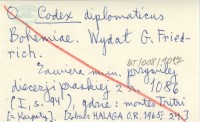 Codex diplomaticus
Bohemiae. Wydał G. Fried-
rich.
BT/008/1092
Zawiera m.in. przywilej
diecezji praskiej z r. 1086
(I, s. 94), gdzie: montes tritri
[= Karpaty]. [Zobacz HALAGA O.R. 1965: 24]